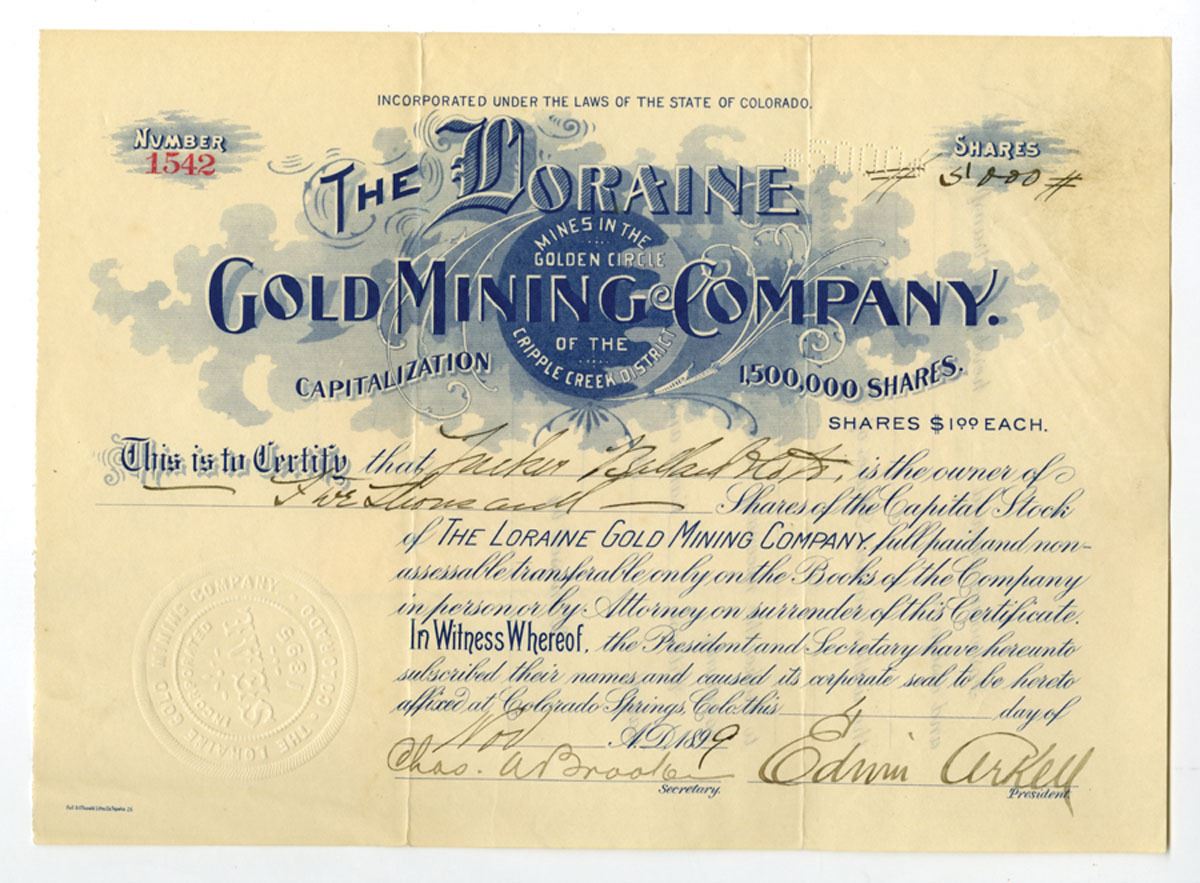 INCORPORATED UNDER THE LAWS OF THE STATE OF COLORADO.
NUMBER
1542
$5000$
SHARES
# 5000 #
THE LORAINE
MINES IN THE
GOLDEN CIRCLE
GOLD MINING COMPANY.
OF THE
CRIPPLE CREEK DISTRICT
CAPITALIZATION
1,500,000 SHARES.
SHARES $1.00 EACH.
This is to Certify that Tucker Ballard & Co, is the owner of
Five thousand Shares of the Capital Stock
of THE LORAINE GOLD MINING COMPANY, full paid and non-
assessable transferable only on the Books of the Company
in person or by Attorney on surrender of this Certificate.
In Witness Whereof, the President and Secretary have hereunto
subscribed their names and caused its corporate seal to be hereto
affixed at Colorado Springs, Colo. this 4 day of
Nov A.D. 1899
Chas. A Brooken Edwin Arkell
Secretary. President.
THE LORAINE GOLD MINING COMPANY. COLORADO
INCORPORATED
SEAL
1895